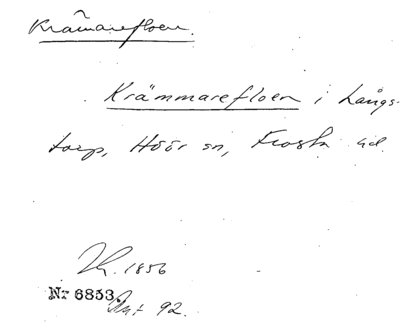 Krämarefloen.
Krämmarefloen i Långs-
torp, Höör sn, Frosta hd.
1856
Nr 6853.
Ant 92.